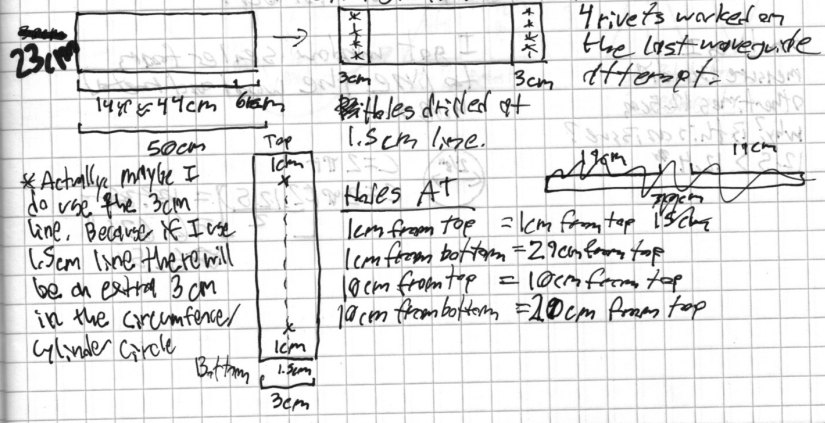 23cm
14π ≈ 44cm
6cm
50cm
3cm
3cm
4 rivets worked on
the last waveguide
attempt.
Holes drilled at
1.5cm line.
* Actually maybe I
do use the 3cm
line. Because if I use
1.5cm line there will
be an extra 3cm
in the circumfence/
cylinder circle
Top
1cm
1cm
Bottom
1.5cm
3cm
Holes AT
1cm from top = 1cm from top
1cm from bottom = 29cm from top
10cm from top = 10cm from top
10cm from bottom = 20cm from top
19cm